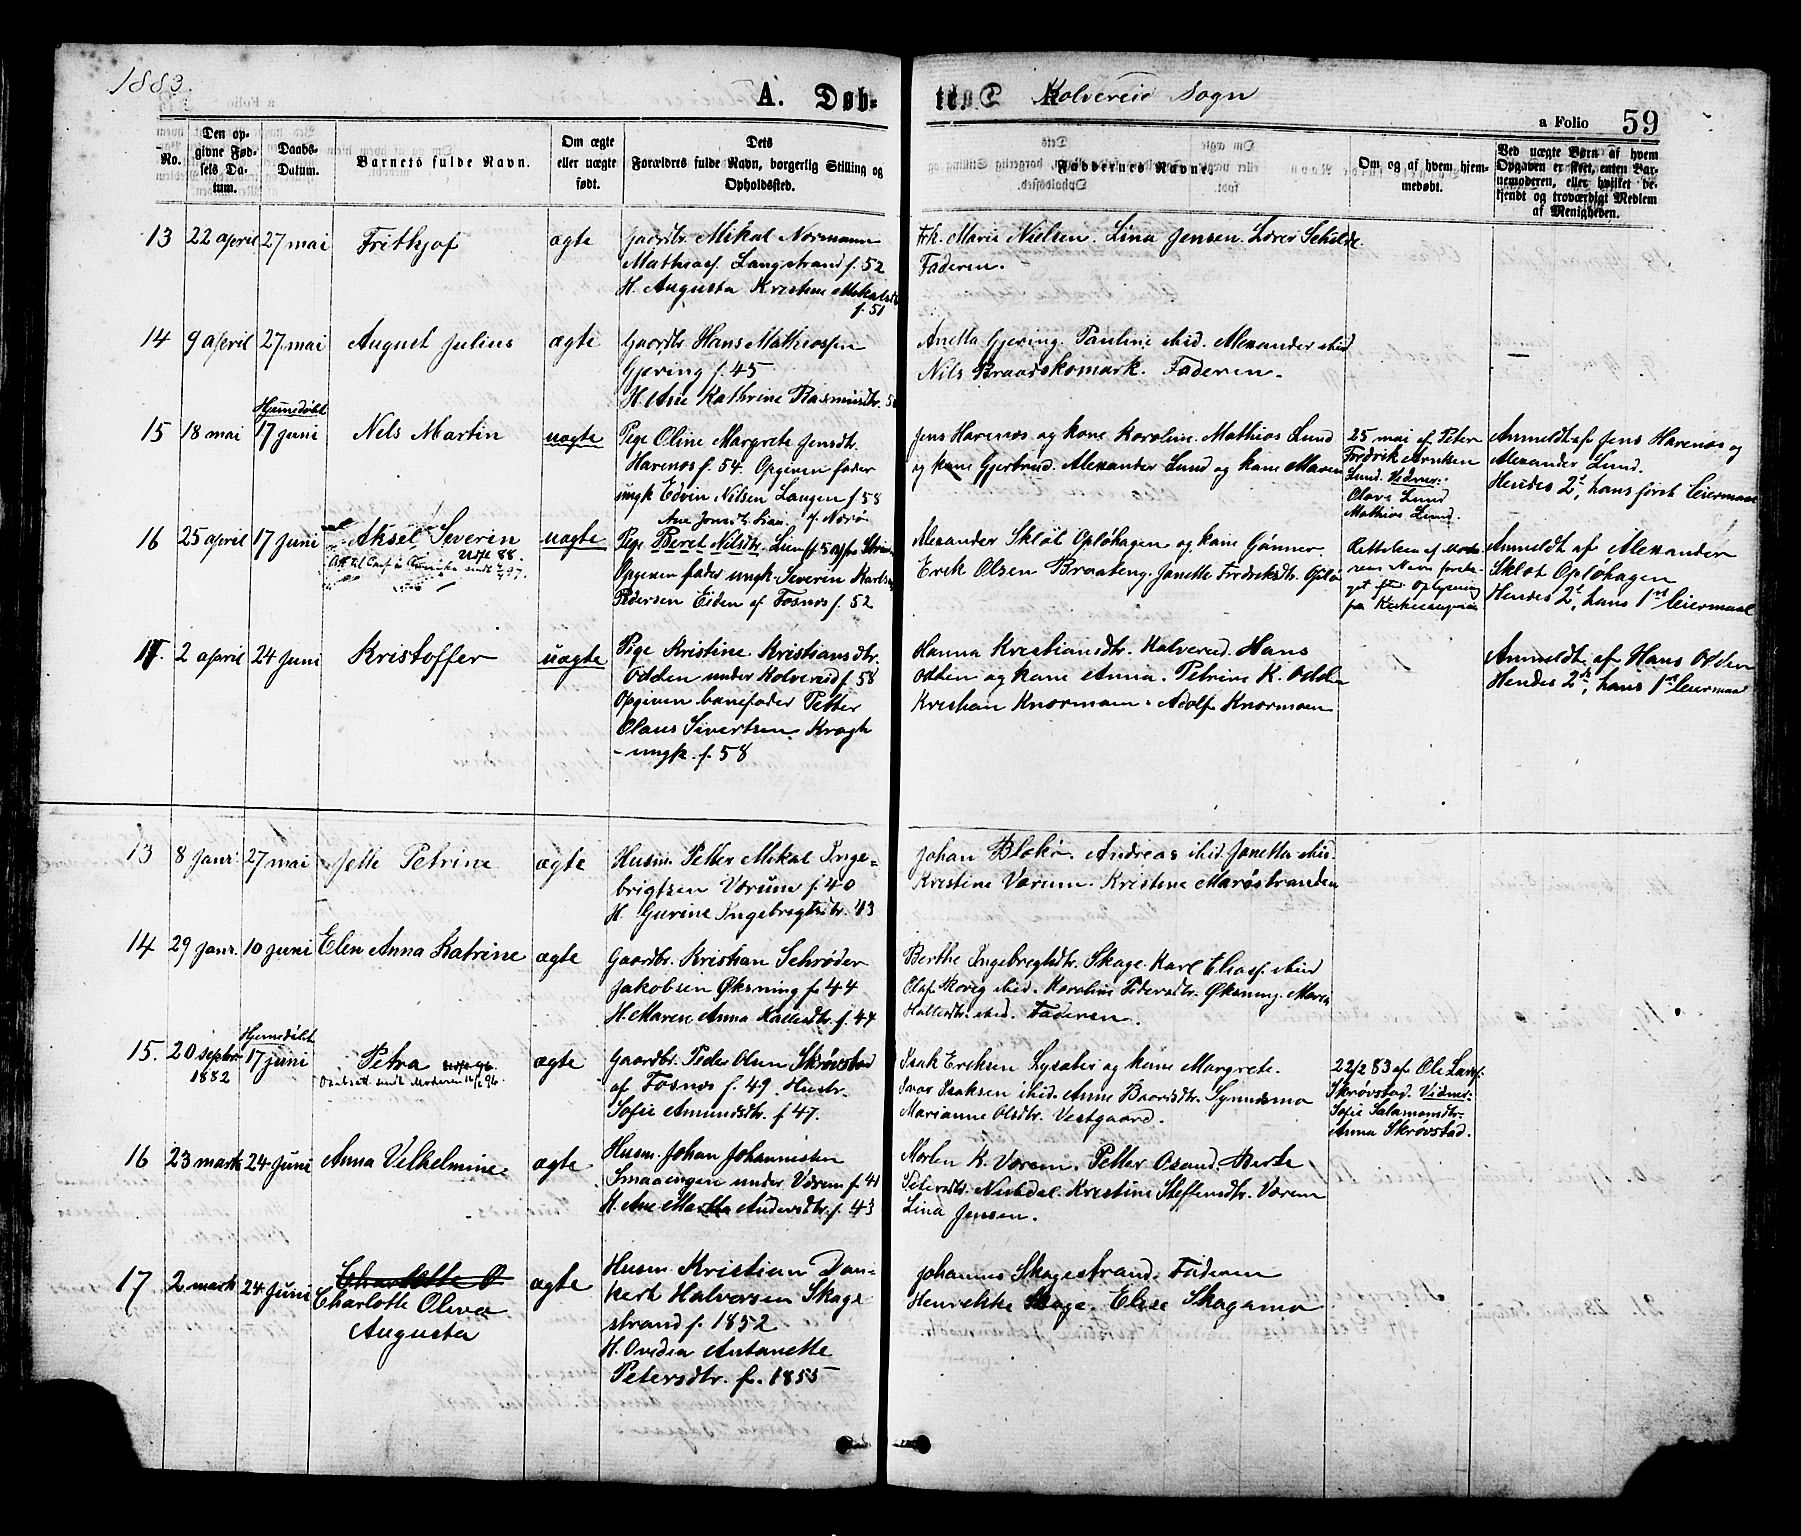 1883.
A. Døb-
te
Kolvereid Sogn
a Folio 59
No.
Den op-
givne Fød-
sels Da-
tum.
Daabs-
Datum.
Barnets fulde Navn.
Om ægte
eller uægte
født.
Dets
Forældres fulde Navn, borgerlig Stilling og
Opholdssted.
Faddernes Navne.
Om og af hvem hjem-
medøbt.
Ved uægte Børn af hvem
Opgaven er skeet, enten Bar-
nemoderen, eller hvilket be-
kjendt og troværdigt Medlem
af Menigheden.
13 22 april 27 mai Frithjof ægte
Gaardbr. Mikal Normann
Mathiasf. Langstrand f. 52
H. Augusta Kristine Mikalsdtr
f. 51
Frk. Marie Nielsen. Lina Jensen. Lærer Schilde
Faderen.
14 9 april 27. mai August Julius ægte
Gaardbr. Hans Mathiassen
Gjering f. 45
H. Ane Kathrine Rasmusdtr.
Anetta Gjering. Pauline ibid. Alexander ibid
Nils Braadskomark. Faderen.
—
15 18 mai Hjemmedøbt 17 juni Nels Martin uægte
Pige Oline Margrete Jensdt.
Harenos f. 54. Opgiven fader
ungk Edvin Nilsen Langen f. 58
Jens Harenos og kone Karoline. Mathias Lund
og kone Gjertrud. Alexander Lund og kone Maren
25 mai af Peter
Fredrik Arntsen
Lund. Vidner:
Olava Lund
Mathias Lund.
Anmeldt af Jens Harenos og
Alexander Lund.
Hendes 2t, hans først leiermaal
16 25 april 17 juni Aksel Severin uægte
Udf. 88.
Att. til
sendt 97.
Ane Jonsdt. Lian af Nærø
Pige Beret Nilsdtr. Lien f. 5
Opgiven fader ungk. Severin Karl
Pedersen Eiden af Fosnes f. 52
Alexander Skløt Opløhagen og kone Gønner.
Erik Olsen Braateng. Janetta Fredriksdtr. Opløi
Rettelsen af Mode-
rens Navn foreta-
get efter Oplysning
fra
Anmeldt af Alexander
Skløt Opløhagen
Hendes 2t, hans 1ste leiermaal
17. 2 april 24 juni Kristoffer uægte
Pige Kristine Kristiansdtr.
Odden under Kolvereid f. 58
Opgiven barnefader Petter
Olaus Sivertsen Kragh
- ungk. f. 58
Hanna Kristiansdtr. Kolvereid. Hans
Odden og kone Anna. Petrine K. Odden
Kristian Knarmoen. Adolf Knarmoen
Anmeldt af Hans Odden
Hendes 2d, hans 1ste leiermaal
13 8 Janr. 27 mai Jette Petrine ægte
Husm. Petter Mikal Inge-
brigtsen Værum f. 40
H. Gurine Ingebrigtsdtr. 43
Johan Blakø. Andreas ibid. Janetta ibid.
Kristine Værum. Kristine Marøstranden
14 29 Janr. 10 juni Elen Anna Katrine ægte
Gaardbr. Kristian Schrøder
Jakobsen Øksning f. 44
H. Maren Anna Hallesdtr. f. 44
Berthe Ingebregtsdtr. Skage. Karl Eliasf. ibid
Olaf Skorig ibid. Karoline Pedersdtr. Øksning. Maria
Hallesdtr. ibid. Faderen.
15. 20 septbr. 1882 Hjemmedøbt 17 juni Petra ægte
Udf. 96.
sendt Moderen 16/6 96.
Gaardbr. Peder Olsen Skrøvstad
af Fosnes f. 49. Hustr.
Sofie Amundsdtr. f. 47.
Isak Eriksen Lysater og kone Margrete.
Ivar Isaksen ibid. Anne Baardsdtr. Synnesmo
Marianne Olsdtr. Vestgaard.
22/2 83 af Ole Larsf.
Skrøvstad. Vidner:
Sofie Salamonsdtr.
Anna Skrøvstad.
16 23 marts 24 juni Anna Vilhelmine ægte
Husm. Johan Johannessen
Smaaengen under Værem f. 41
H. Ane Martha Andersdtr. f. 43
Morten K. Værem. Petter Osand. Berte
Petersdtr. Nubdal. Kristine Steffensdtr. Værem
Lina Jensen.
17 2 marts 24 juni Charlotte O
Charlotte Oliva
Augusta
ægte
Husm. Kristian Dan-
kert Halvorsen Skage
strand f. 1852
H. Ovidia Antonette
Petersdtr. f. 1855
Johannes Skagestrand. Faderen
Henrikke Skage. Elise Skagamo